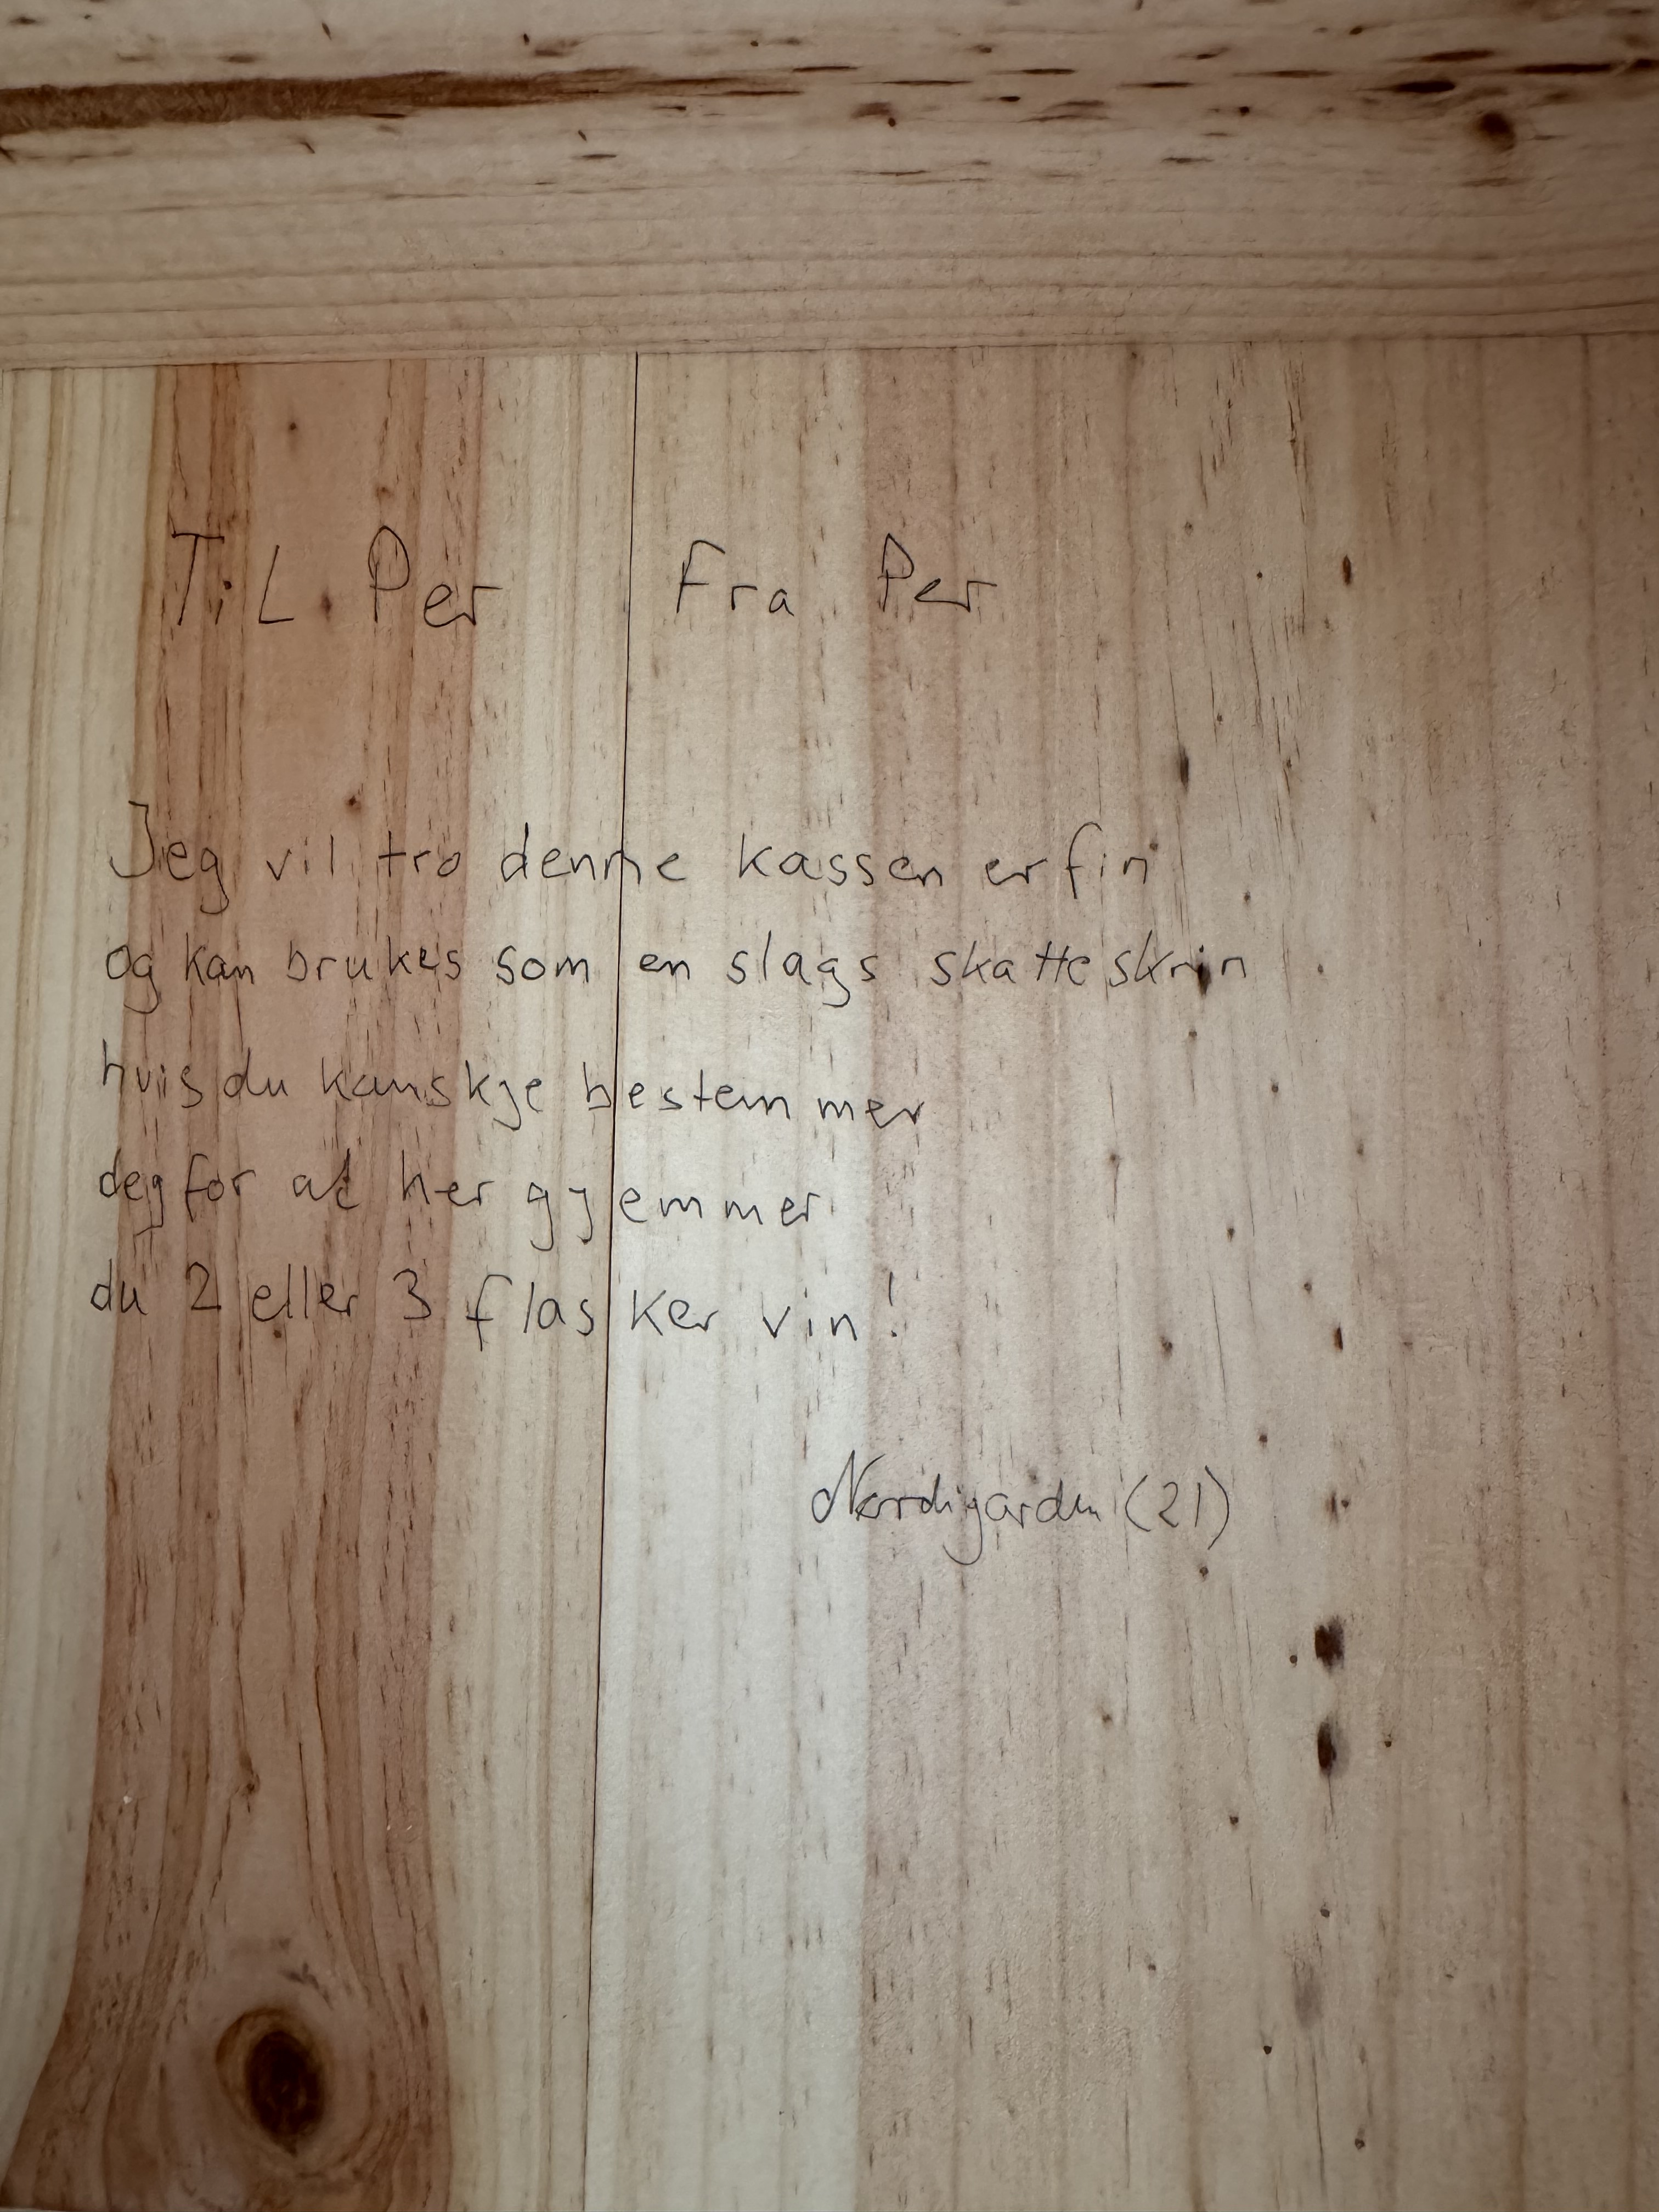 Til Per Fra Per
Jeg vil tro denne kassen er fin
og kan brukes som en slags skatteskrin
hvis du kanskje bestemmer
deg for at her gjemmer
du 2 eller 3 flasker vin!
Nordigarden (21)